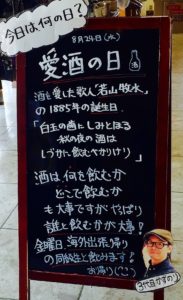 今日は何の日?
8月24日(水)
愛酒の日
酒を愛した歌人「若山牧水」
の1885年の誕生日
「白玉の歯にしみとほる
秋の夜の酒は
しづかに飲むべかりけり」
酒は何を飲むか
どこで飲むか
も大事ですがやっぱり
誰と飲むかが大事!
金曜日 海外出張帰り
の同級生と飲めます!
お帰り(^^)
3代目かずのり